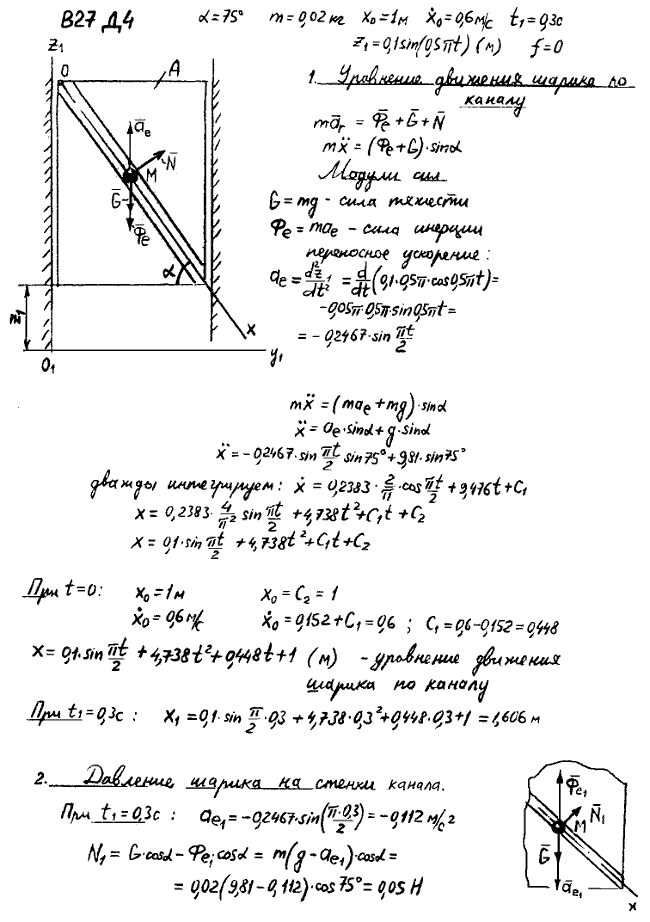 В27 Д4 α=75° m=0,02 кг x₀=1м ẋ₀=0,6 м/с t₁=0,3с
z₁=0,1sin(0,5πt) (м) f=0
z₁
O
A
āₑ
N̄
M
Ḡ
Φ̄ₑ
α
z₁
x
O₁
y₁
1. Уравнение движения шарика по
каналу
māᵣ = Φ̄ₑ+Ḡ+N̄
mẍ = (Φₑ+G)·sinα
Модули сил
G=mg - сила тяжести
Φₑ=maₑ - сила инерции
переносное ускорение:
aₑ = d²z₁/dt² = d/dt(0,1·0,5π·cos0,5πt)=
-0,05π·0,5π·sin0,5πt=
= -0,2467·sin πt/2
mẍ = (maₑ+mg)·sinα
ẍ = aₑ·sinα+g·sinα
ẍ = -0,2467·sin πt/2 sin75°+9,81·sin75°
дважды интегрируем: ẋ = 0,2383·2/π·cos πt/2 + 9,476t+C₁
x = 0,2383·4/π² sin πt/2 +4,738t²+C₁t+C₂
x = 0,1·sin πt/2 +4,738t²+C₁t+C₂
При t=0: x₀=1м x₀=C₂=1
ẋ₀=0,6 м/с ẋ₀=0,152+C₁=0,6 ; C₁=0,6-0,152=0,448
x=0,1·sin πt/2 +4,738t²+0,448t+1 (м) - уравнение движения
шарика по каналу
При t₁=0,3с : x₁=0,1·sin π/2·0,3 +4,738·0,3²+0,448·0,3+1 = 1,606 м
2. Давление шарика на стенки канала.
При t₁=0,3с : aₑ₁=-0,2467·sin(π·0,3/2)=-0,112 м/с²
N₁ = G·cosα-Φₑ₁cosα = m(g-aₑ₁)·cosα=
= 0,02(9,81-0,112)·cos75°=0,05 Н
Φ̄ₑ₁
N̄₁
M
Ḡ
āₑ₁
x